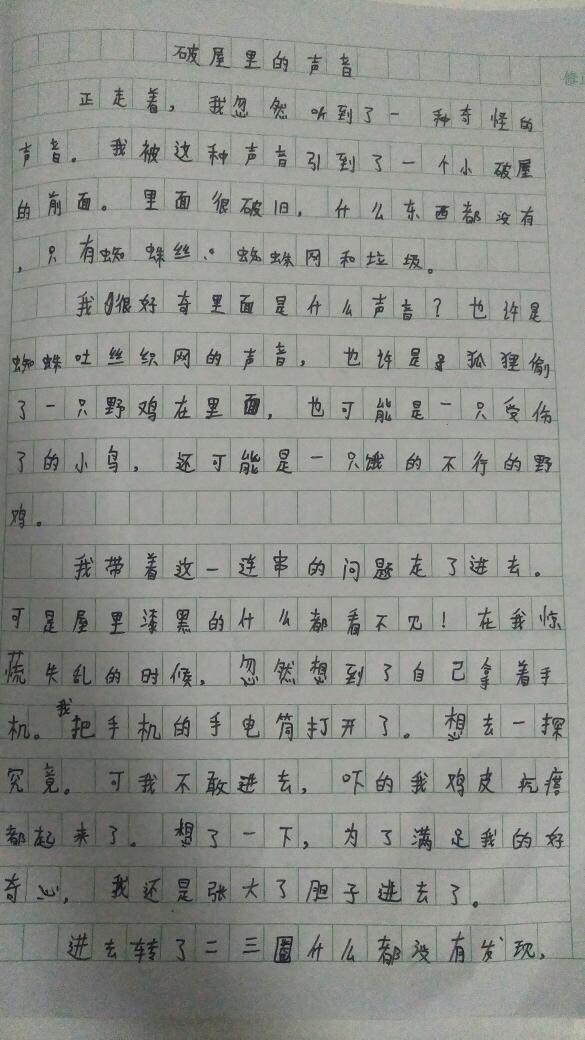 破屋里的声音
正走着，我忽然听到了一种奇怪的
声音。我被这种声音引到了一个小破屋
的前面。里面很破旧，什么东西都没有
，只有蜘蛛丝。蜘蛛网和垃圾。
我很好奇里面是什么声音？也许是
蜘蛛吐丝织网的声音，也许是狐狸偷
了一只野鸡在里面，也可能是一只受伤
了的小鸟，还可能是一只饿的不行的野
鸡。
我带着这一连串的问题走了进去。
可是屋里漆黑的什么都看不见！在我惊
慌失乱的时候，忽然想到了自己拿着手
机。我把手机的手电筒打开了。想去一探
究竟。可我不敢进去，吓的我鸡皮疙瘩
都起来了。想了一下，为了满足我的好
奇心，我还是张大了胆子进去了。
进去转了二三圈什么都没有发现，